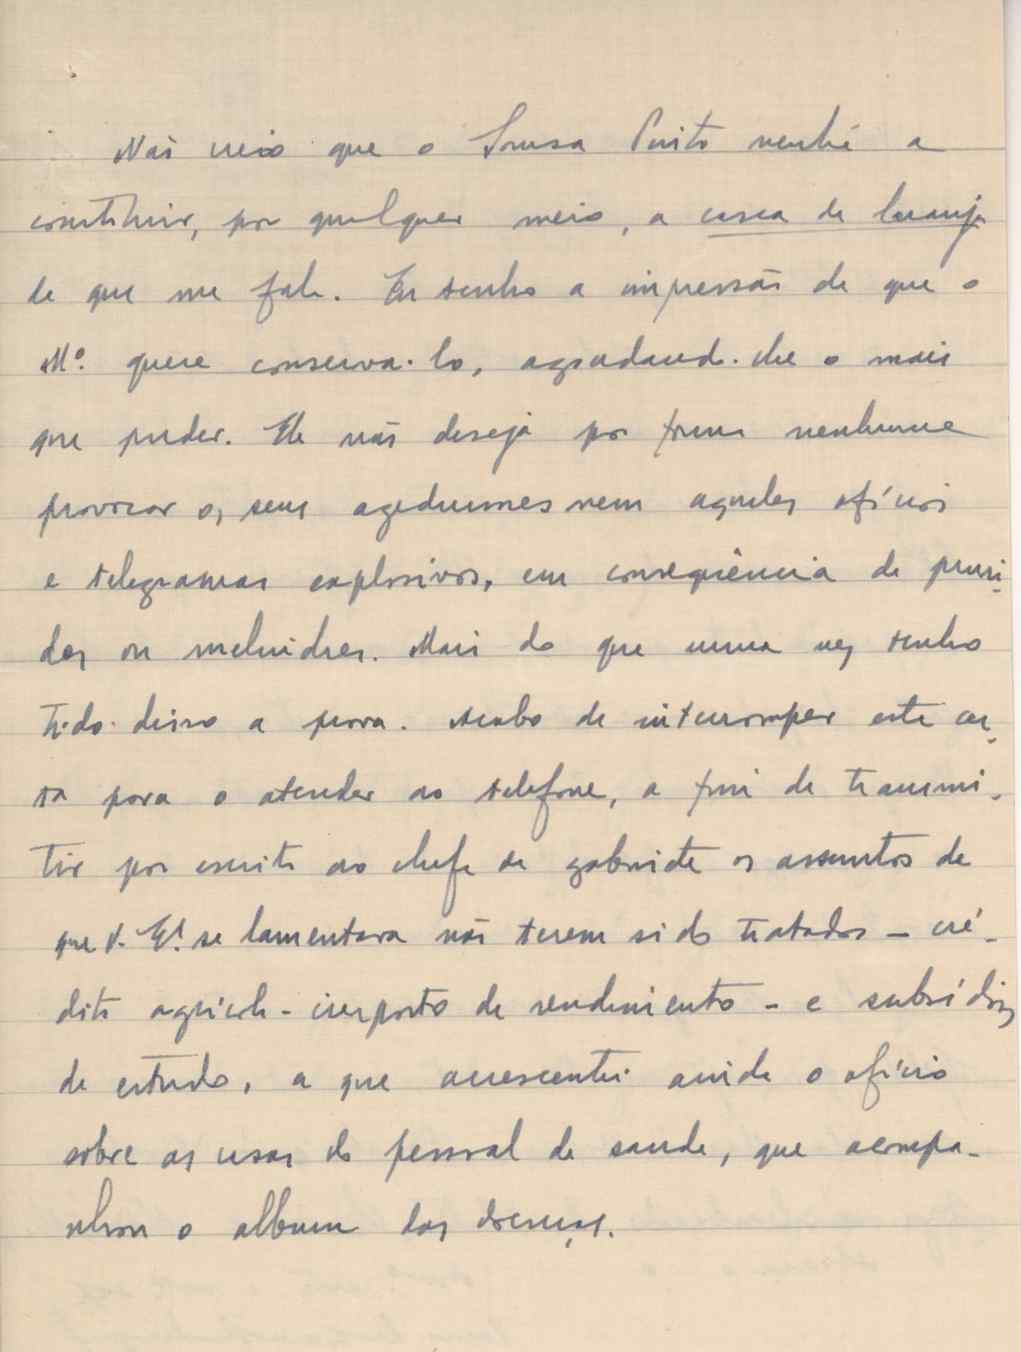 Não creio que o Sousa Pinto venha a
constituir, por qualquer meio, a casca de laranja
de que me fala. Eu tenho a impressão de que o
Mº. quere conserva-lo, agradand-lhe o mais
que puder. Ele não deseja por forma nenhuma
provocar os seus azedumes nem aqueles ofícios
e telegramas explosivos, em conseqüência de pruri-
dos ou melindres. Mais do que uma vez tenho
tido disso a prova. Acabo de interromper esta car-
ta para o atender ao telefone, a fim de transmi-
tir por escrito ao chefe de gabinete os assuntos de
que V. Exª. se lamentava não terem sido tratados - cré-
dito agrícola - imposto de rendimento - e subsídios
de estudo, a que acrescentei ainda o ofício
sobre as casas do pessoal de saude, que acompa-
nhou o album das doenças.